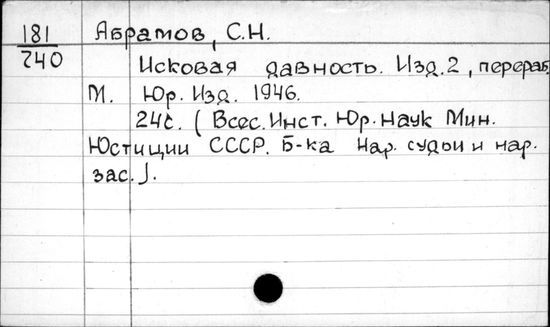 181 Абрамов, С.Н.
240
Исковая давность. Изд.2, перераб.
М. Юр. Изд. 1946.
24с. (Всес. Инст. Юр. Наук Мин.
Юстиции СССР. Б-ка нар. судьи и нар.
зас.).